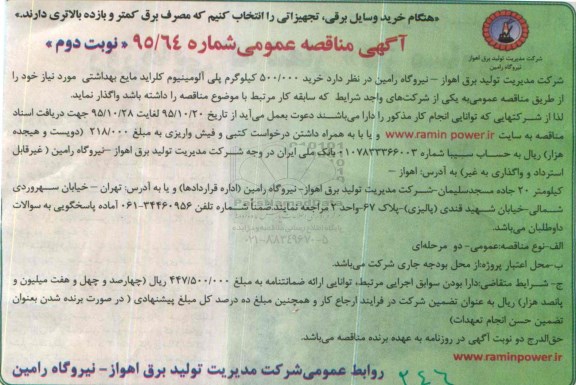 «هنگام خرید وسایل برقی، تجهیزاتی را انتخاب کنیم که مصرف برق کمتر و بازده بالاتری دارند.»
آگهی مناقصه عمومی‌شماره ۹۵/۶۴ « نوبت دوم »
شرکت مدیریت تولید برق اهواز
نیروگاه رامین
شرکت مدیریت تولید برق اهواز –نیروگاه رامین در نظر دارد خرید ۵۰۰/۰۰۰ کیلوگرم پلی آلومینیوم کلراید مایع بهداشتی مورد نیاز خود را
از طریق مناقصه عمومی‌به یکی از شرکت‌های واجد شرایط که سابقه کار مرتبط با موضوع مناقصه را داشته باشد واگذار نماید.
لذا از شرکتهایی که توانایی انجام کار مذکور را دارا می‌باشند دعوت بعمل می‌آید از تاریخ ۹۵/۱۰/۲۰ لغایت ۹۵/۱۰/۲۸ جهت دریافت اسناد
مناقصه به سایت www.ramin power.ir و یا با به همراه داشتن درخواست کتبی و فیش واریزی به مبلغ ۲۱۸/۰۰۰ (دویست و هیجده
هزار) ریال به حساب سیبا شماره ۰۱۰۷۸۳۳۳۶۶۰۰۳ بانک ملی ایران در وجه شرکت مدیریت تولید برق اهواز –نیروگاه رامین (غیرقابل
استرداد و واگذاری به غیر) به آدرس: اهواز –
کیلومتر ۲۰ جاده مسجدسلیمان-شرکت مدیریت تولید برق اهواز-نیروگاه رامین (اداره قراردادها) و یا به آدرس: تهران – خیابان سهروردی
شمالی-خیابان شهید قندی (پالیزی)-پلاک ۶۷-واحد ۲ مراجعه نمایند.ضمنا شماره تلفن ۳۴۴۶۰۹۵۶-۰۶۱ آماده پاسخگویی به سوالات
داوطلبان می‌باشد.
۰۲۱-۸۸۳۴۹۶۷۰-۵
الف-نوع مناقصه:عمومی- دو مرحله‌ای
ب-محل اعتبار پروژه:از محل بودجه جاری شرکت می‌باشد.
ج- شرایط متقاضی:دارا بودن سوابق اجرایی مرتبط، توانایی ارائه ضمانتنامه به مبلغ ۴۴۷/۵۰۰/۰۰۰ ریال (چهارصد و چهل و هفت میلیون و
پانصد هزار) ریال به عنوان تضمین شرکت در فرایند ارجاع کار و همچنین مبلغ ده درصد کل مبلغ پیشنهادی ( در صورت برنده شدن بعنوان
تضمین حسن انجام تعهدات)
حق‌الدرج دو نوبت آگهی در روزنامه به عهده برنده مناقصه می‌باشد.
www.raminpower.ir
روابط عمومی‌شرکت مدیریت تولید برق اهواز- نیروگاه رامین
۲۴۶